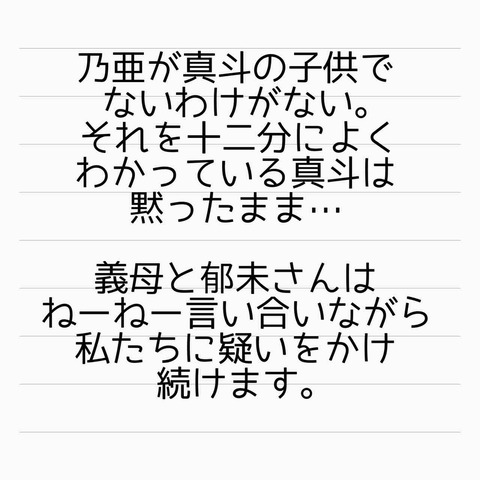 乃亜が真斗の子供で
ないわけがない。
それを十二分によく
わかっている真斗は
黙ったまま…
義母と郁未さんは
ねーねー言い合いながら
私たちに疑いをかけ
続けます。